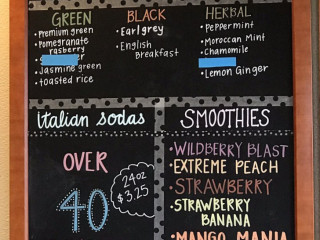 GREEN
• Premium green
• Pomegranate
rasberry
• Jasmine green
• toasted rice
BLACK
• Earl grey
• English
Breakfast
HERBAL
• Peppermint
• Moroccan Mint
• Chamomile
• Lemon Ginger
italian sodas
OVER
40
24oz
$3.25
SMOOTHIES
• WILDBERRY BLAST
• EXTREME PEACH
• STRAWBERRY
• STRAWBERRY
BANANA
• MANGO MANIA